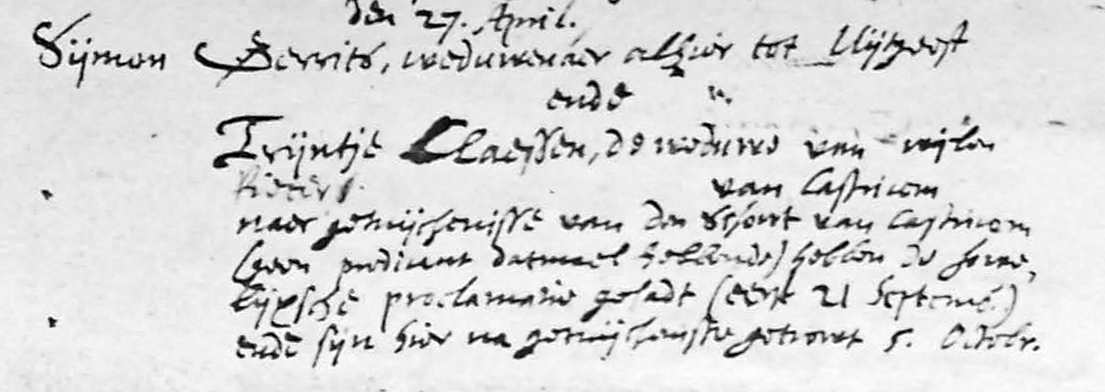 den 27. April.
Sijmon Gerrits, weduwenaer alhier tot Uijtgeest
ende
Trijntje Claessen, de weduwe van wijlen
Pieters van Castricom
naer getuijchenisse van den Schout van Castricom
(geen predicant datmael hebbende) hebben de houwe,
lijxsche proclamatie gehadt (eerst 21 Septemb.)
ende sijn hier na getuijchenisse getrout 5. Octobr.